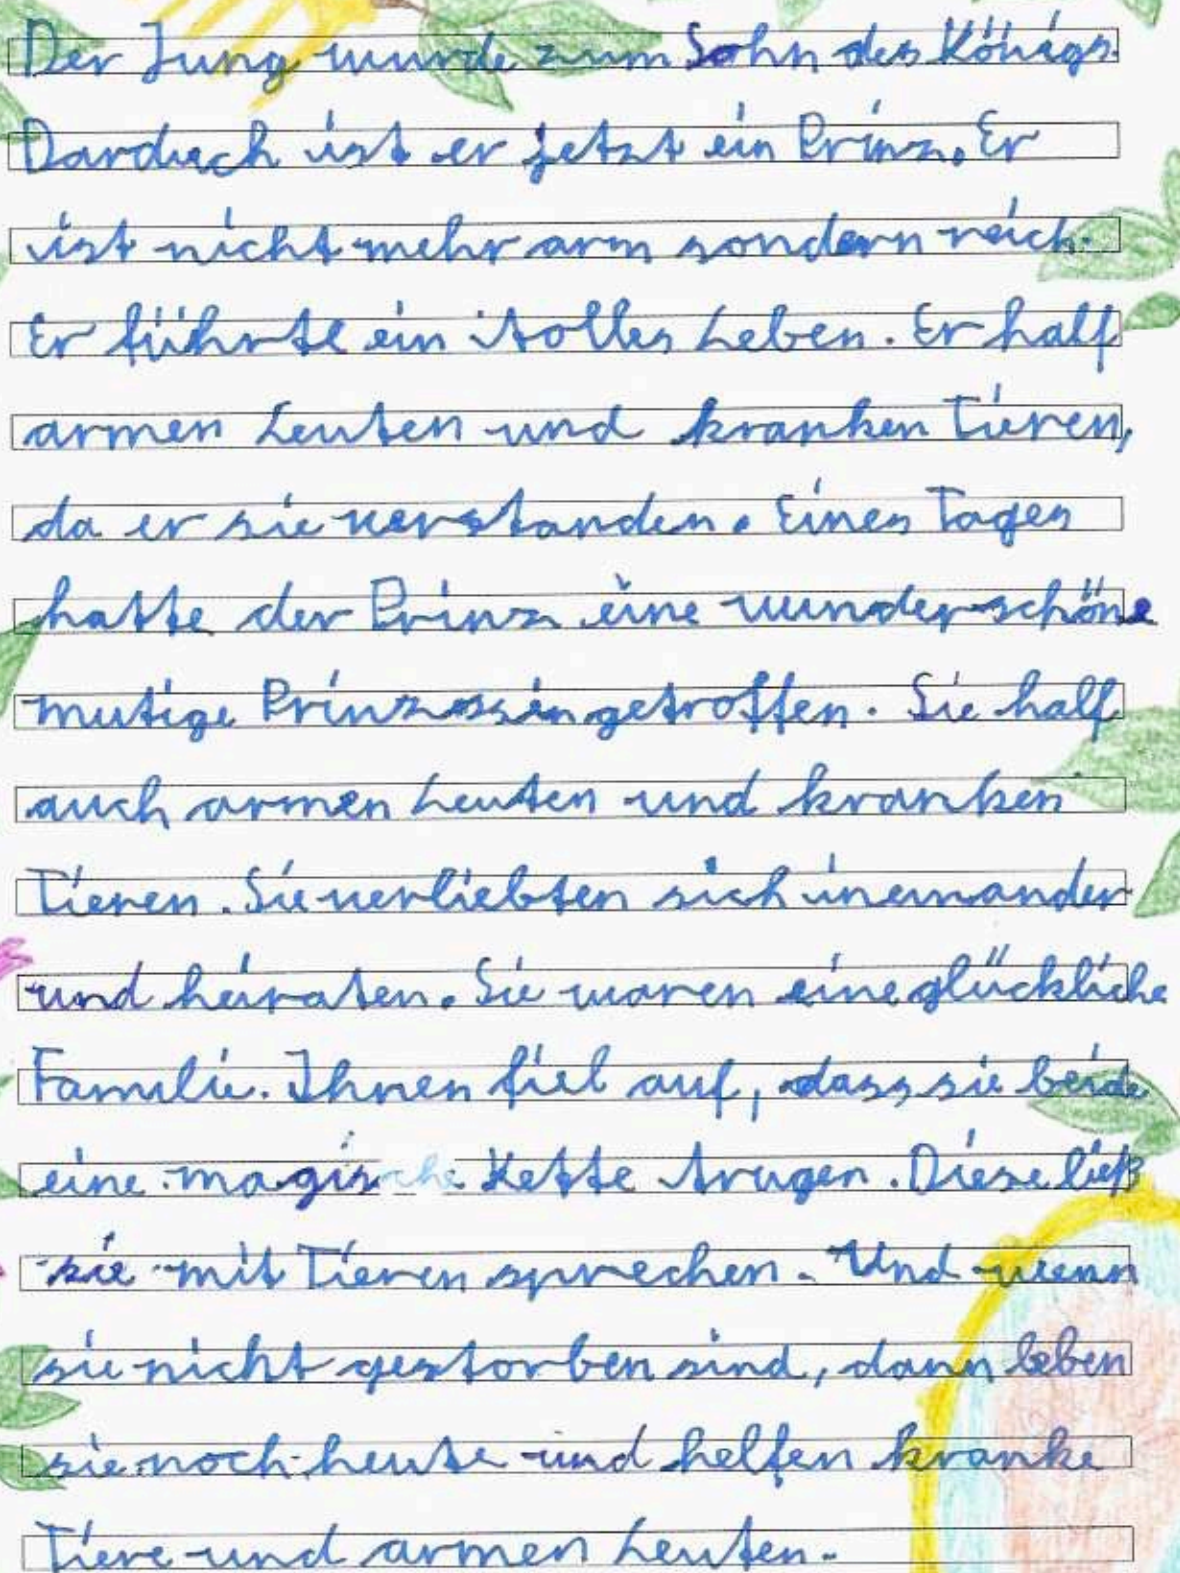 Der Jung wurde zum Sohn des Königs.
Darduch ist er jetzt ein Prinz. Er
ist nicht mehr arm sondern reich.
Er führte ein tolles Leben. Er half
armen Leuten und kranken Tieren,
da er sie verstanden. Eines Tages
hatte der Prinz eine wunderschöne
mutige Prinzessin getroffen. Sie half
auch armen Leuten und kranken
Tieren. Sie verliebten sich ineinander
und heiraten. Sie waren eine glückliche
Familie. Ihnen fiel auf, dass sie beide
eine magische Kette trugen. Diese ließ
sie mit Tieren sprechen. Und wenn
sie nicht gestorben sind, dann leben
sie noch heute und helfen kranke
Tiere und armen Leuten.